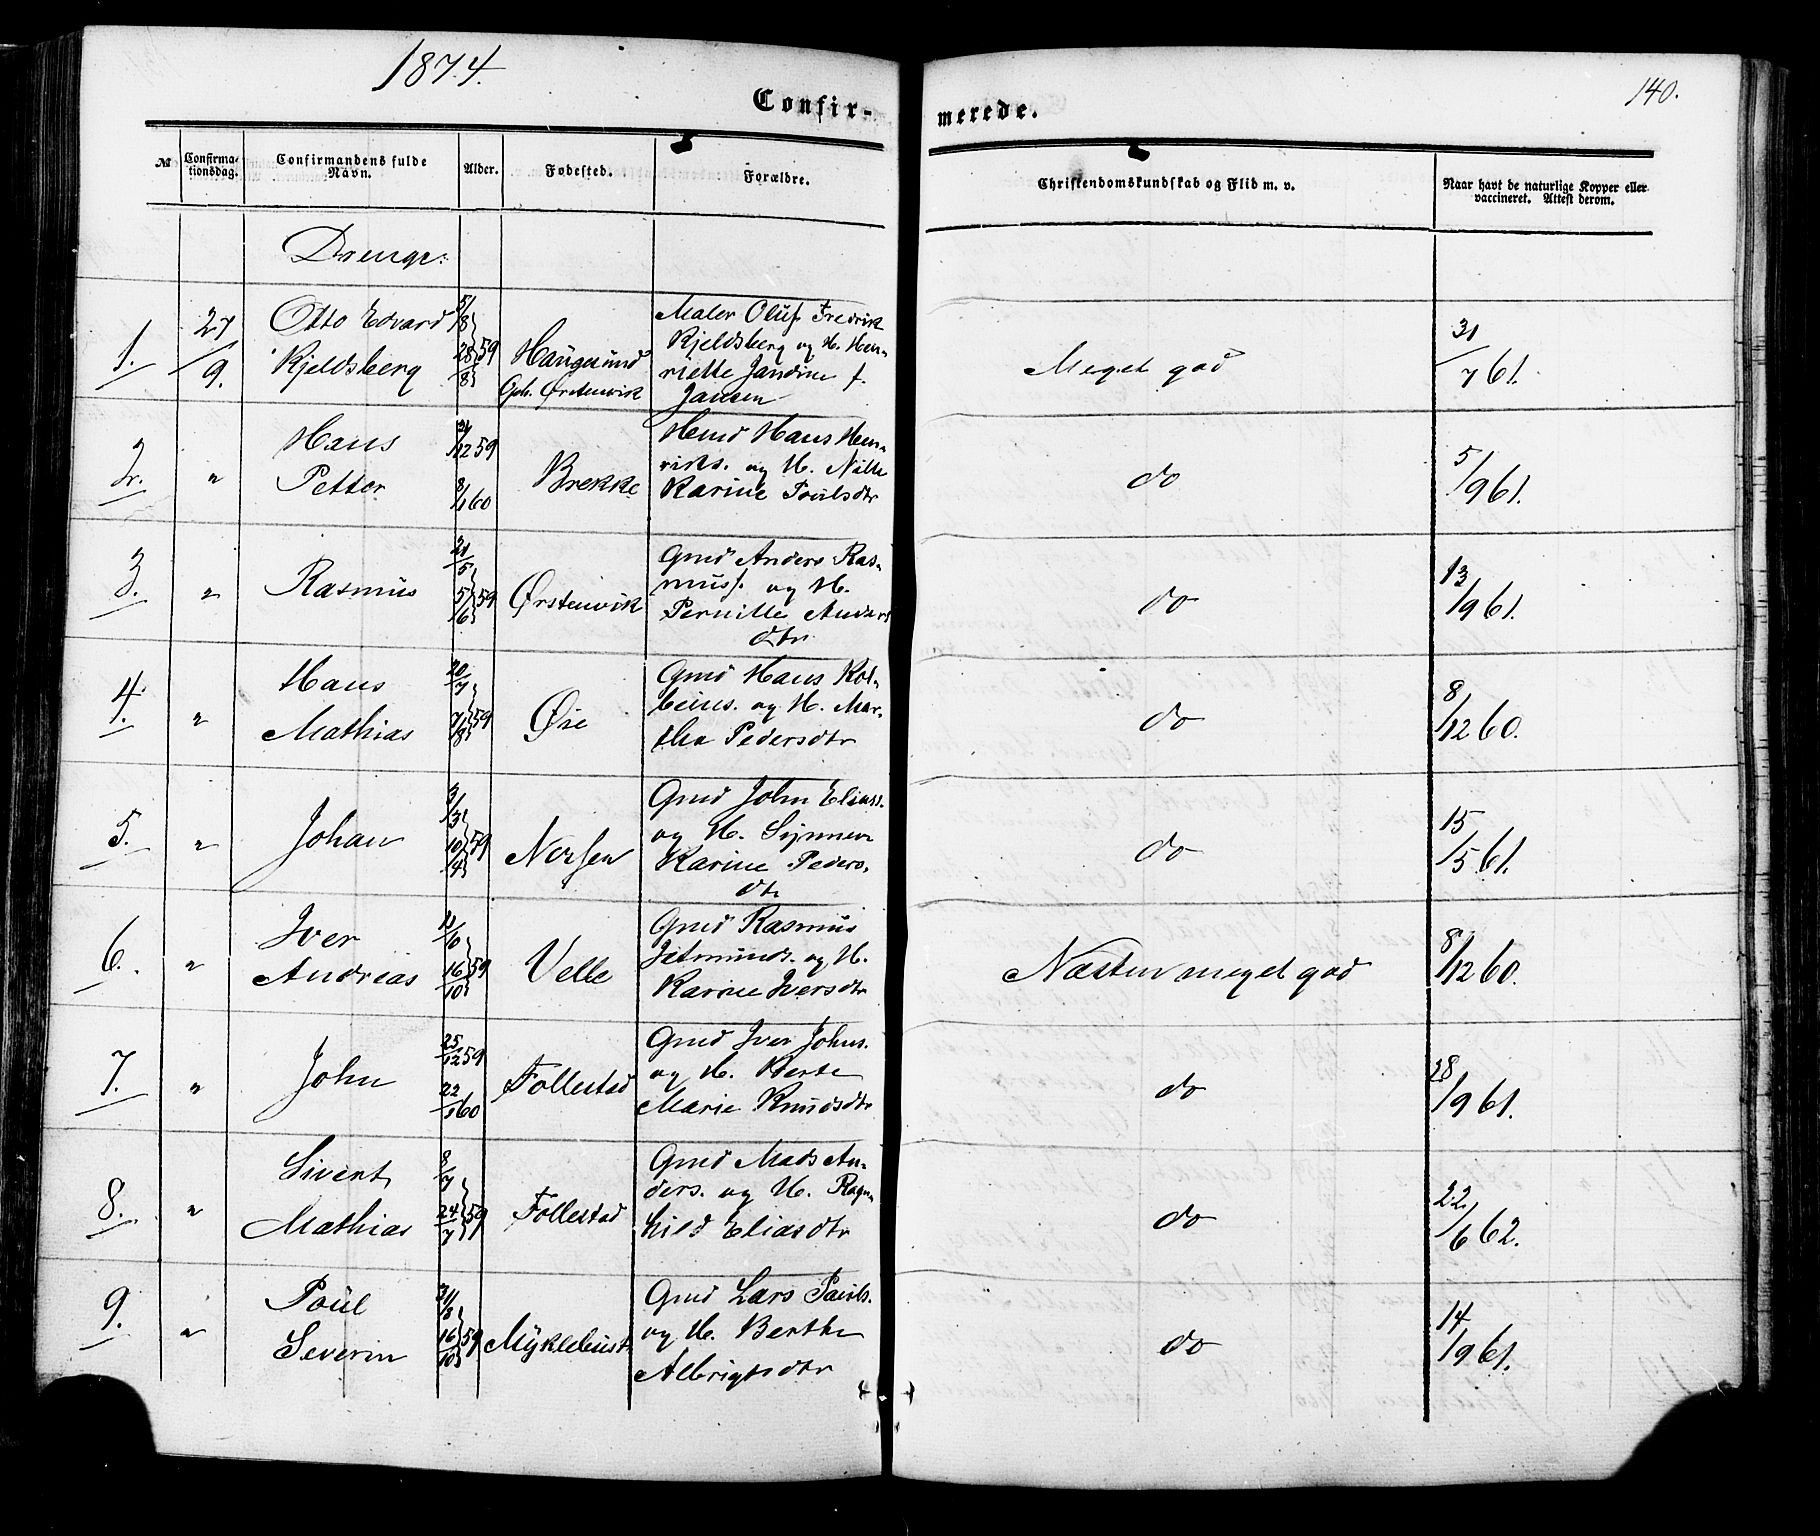 1874.
140.
Confir-
merede.
№
Confirma-
tionsdag.
Confirmandens fulde
Navn.
Alder.
Fødested.
Forældre.
Christendomskundskab og Flid m. v.
Naar havt de naturlige Kopper eller
vaccineret. Attest derom.
Drenge:
1.
27/9.
Otto Edvard
Kjeldsberg
5/8
28/8 } 59
Haugesund
Oph. Ørstenvik
Maler Oluf Fredrik
Kjeldsberg og H. Hen-
riette Jandine f.
Jansen
Meget god
31/7 61.
2.
"
Hans
Petter
/12 59
8/1 60
Brekke
Hmd Hans Hen-
riks. og H.
Karine Poulsdtr
do
5/9 61.
3.
"
Rasmus
21/5
5/6 } 59
Ørstenvik
Gmd Anders Ras-
muss. og H.
Pernille Anders
dtr
do
13/9 61.
4.
"
Hans
Mathias
20/7
7/8 } 59
Øie
Gmd Hans Kol-
beins. og H. Mar-
tha Pedersdtr
do
8/12 60.
5.
"
Johan
3/3
10/4 } 59
Gmd John Eliass.
og H. Synneve
Karine Peders-
dtr
do
15/5 61.
6.
"
Iver
Andreas
11/10
16/10 } 59
Velle
Gmd Rasmus
Jetmunds. og H.
Karine Iversdtr
Næsten meget god
8/12 60.
7.
"
John
25/12 59
22/1 60
Follestad
Gmd Iver Johns.
og H. Berte
Marie Knudsdtr
do
28/9 61.
8.
"
Sivert
Mathias
8/7
24/7 } 59
Follestad
Gmd Mads An-
ders. og H. Ragn-
hild Eliasdtr
do
22/6 62.
9.
"
Poul
Severin
16/10 } 59
Myklebust
Gmd Lars Pouls.
og H. Berthe
Albrigtsdtr
do
14/9 61.